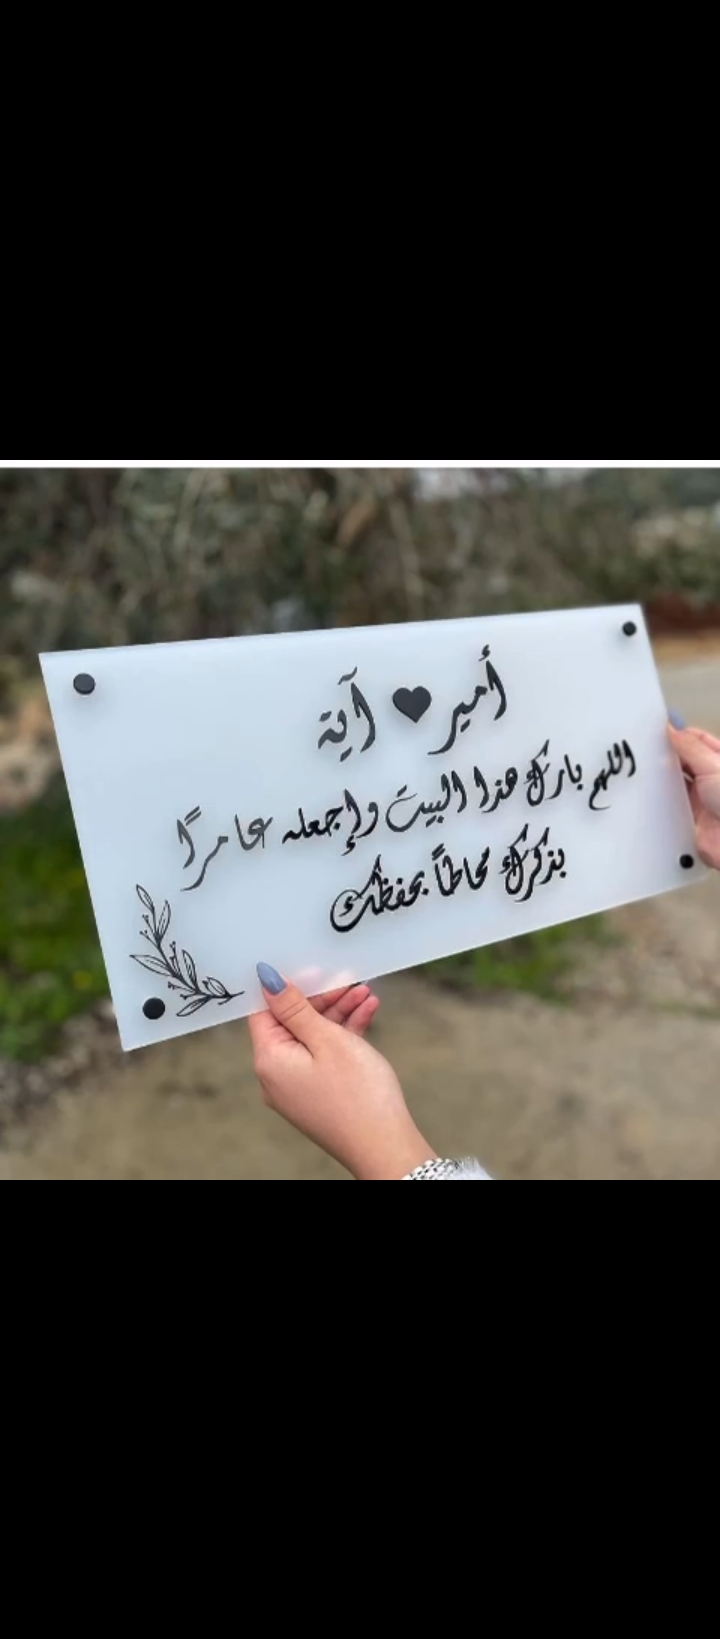 أمير ♥ آية
اللهم بارك هذا البيت وإجعله عامرًا
بذكرك محاطاً بحفظك